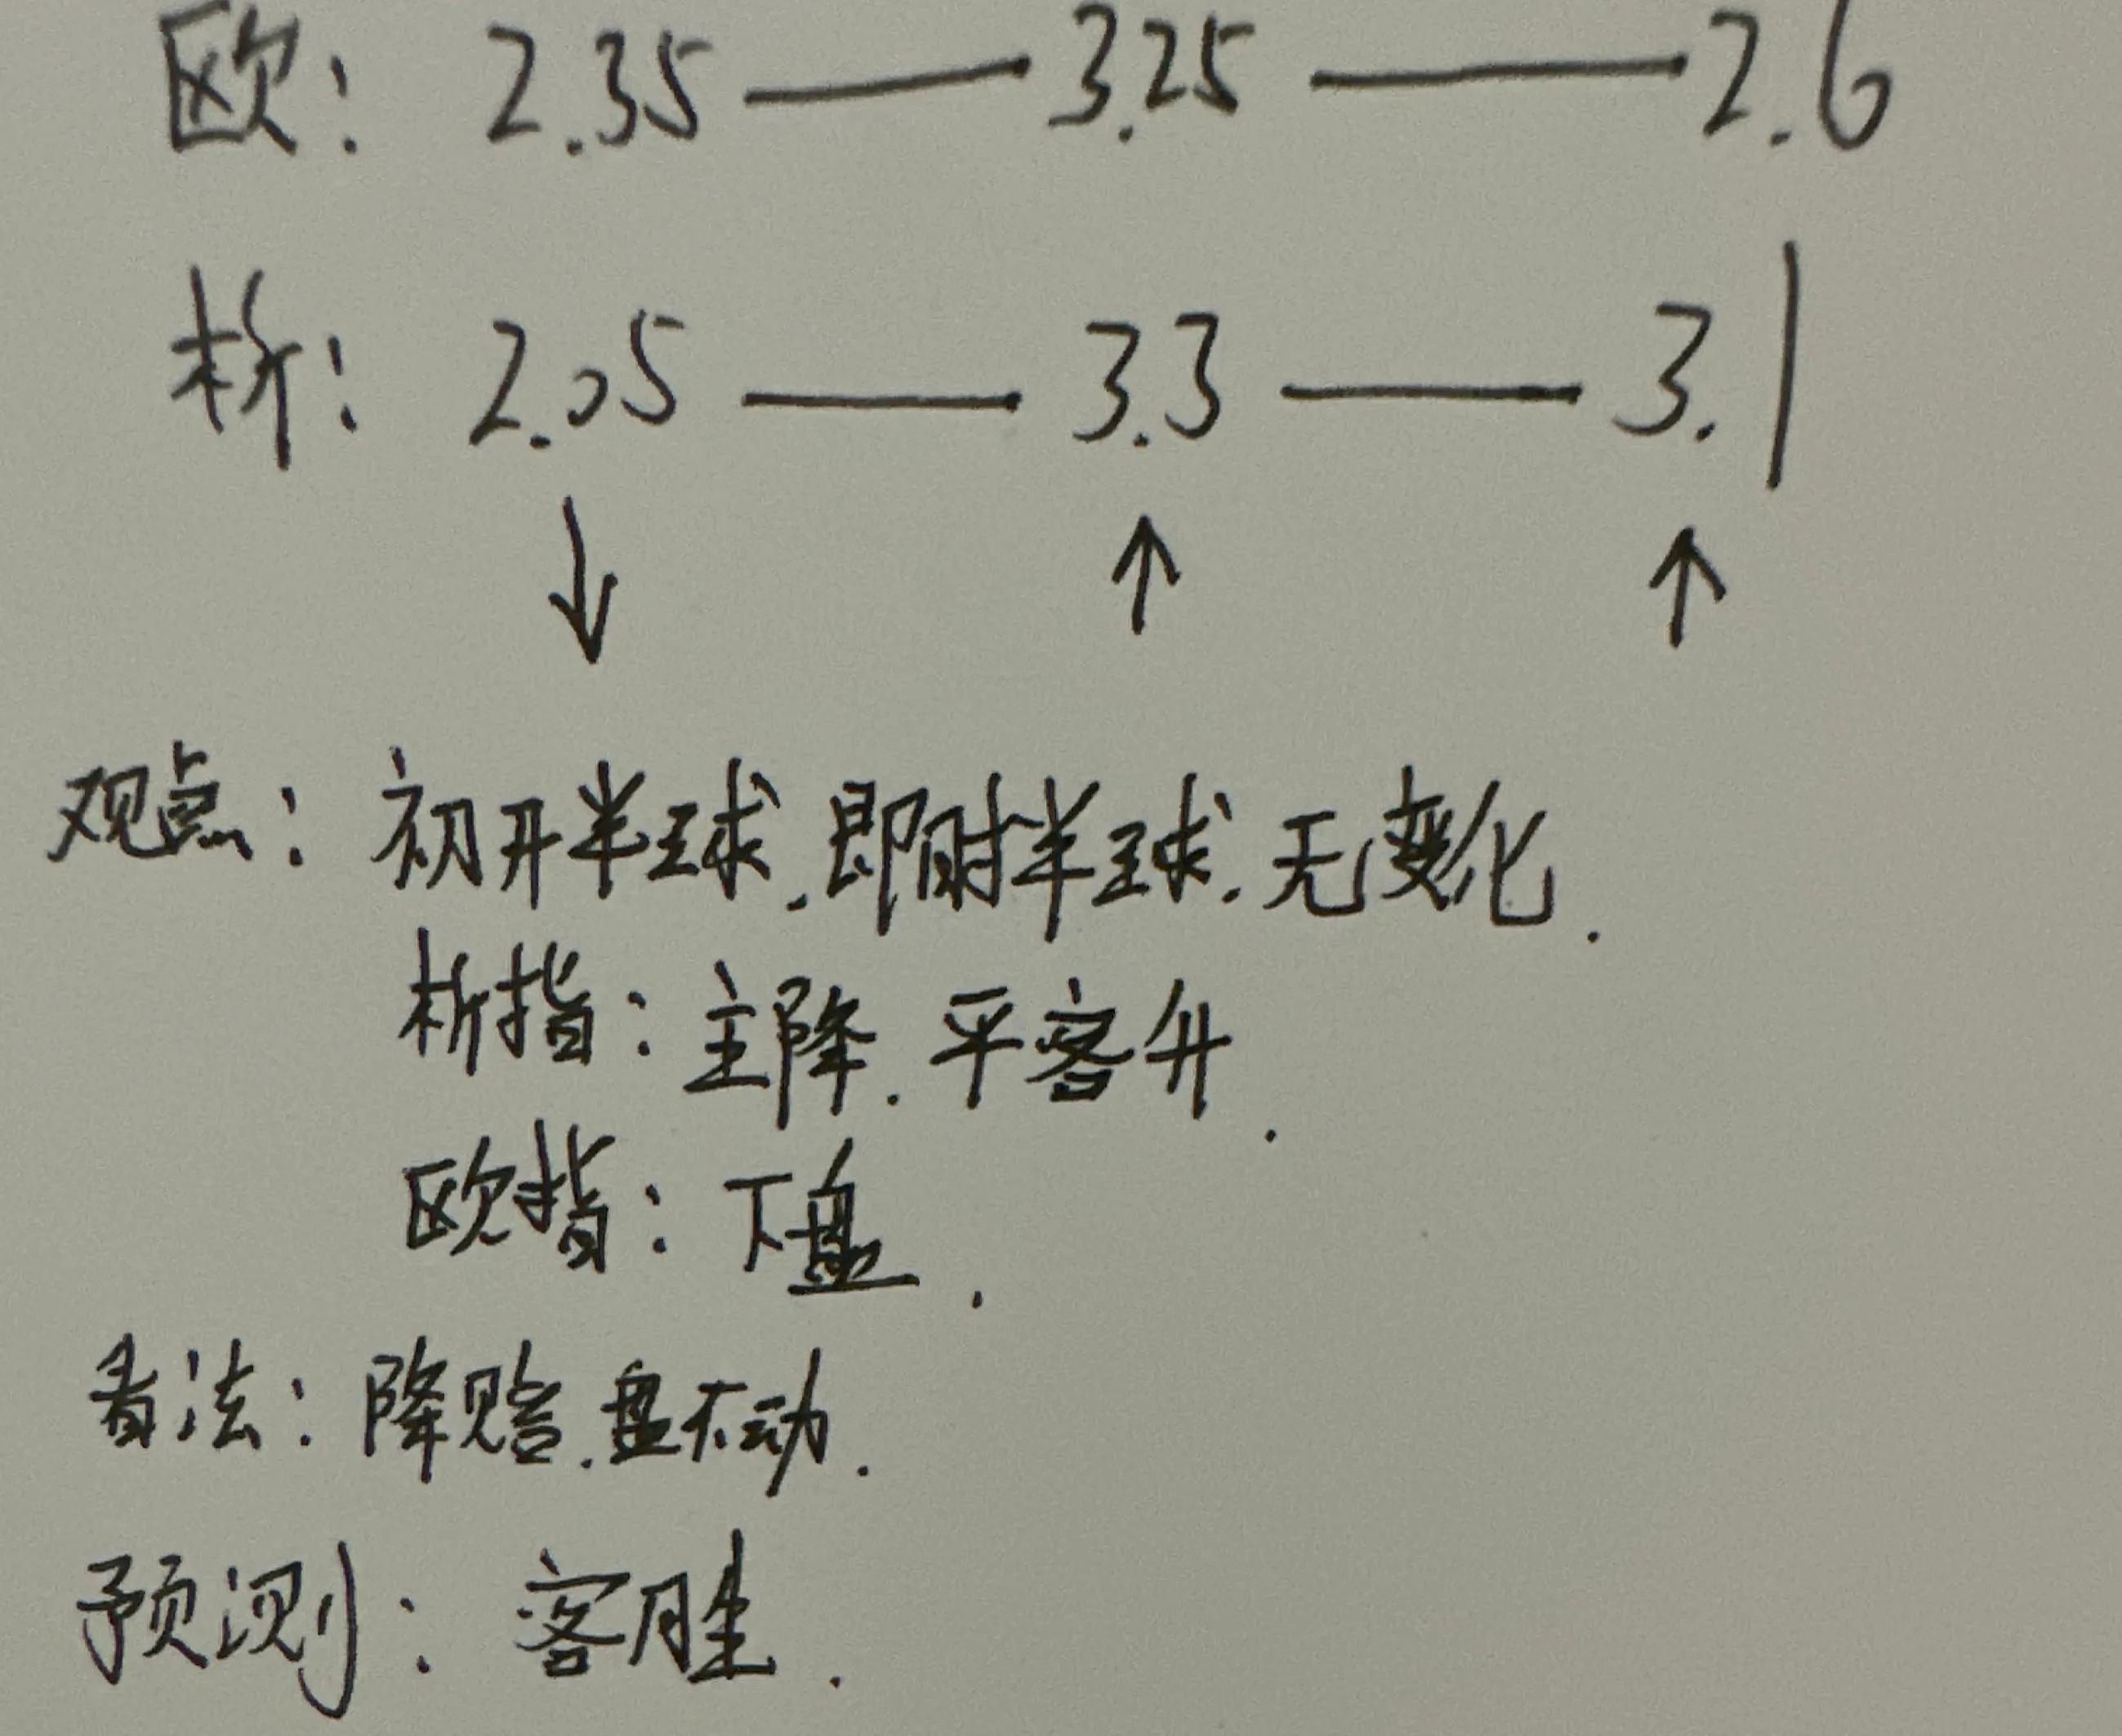 欧: 2.35 — 3.25 — 2.6
析: 2.05 — 3.3 — 3.1
↓ ↑ ↑
观点: 初开半球.即时半球.无变化.
析指: 主降.平客升.
欧指: 下盘.
看法: 降赔.盘不动.
预测: 客胜.